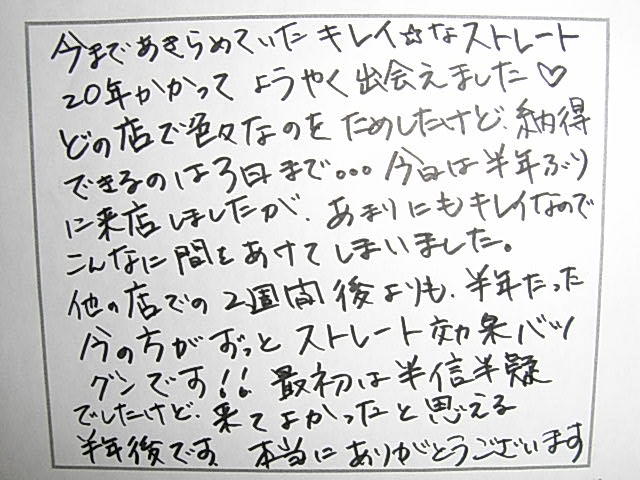 今まであきらめていたキレイ☆なストレート
20年かかってようやく出会えました♡
どの店で色々なのをためしたけど、納得
できるのは3日まで...今日は半年ぶり
に来店しましたが、あまりにもキレイなので
こんなに間をあけてしまいました。
他の店での2週間後よりも、半年たった
今の方がずっとストレート効果バツ
グンです!!最初は半信半疑
でしたけど、来てよかったと思える
半年後です 本当にありがとうございます